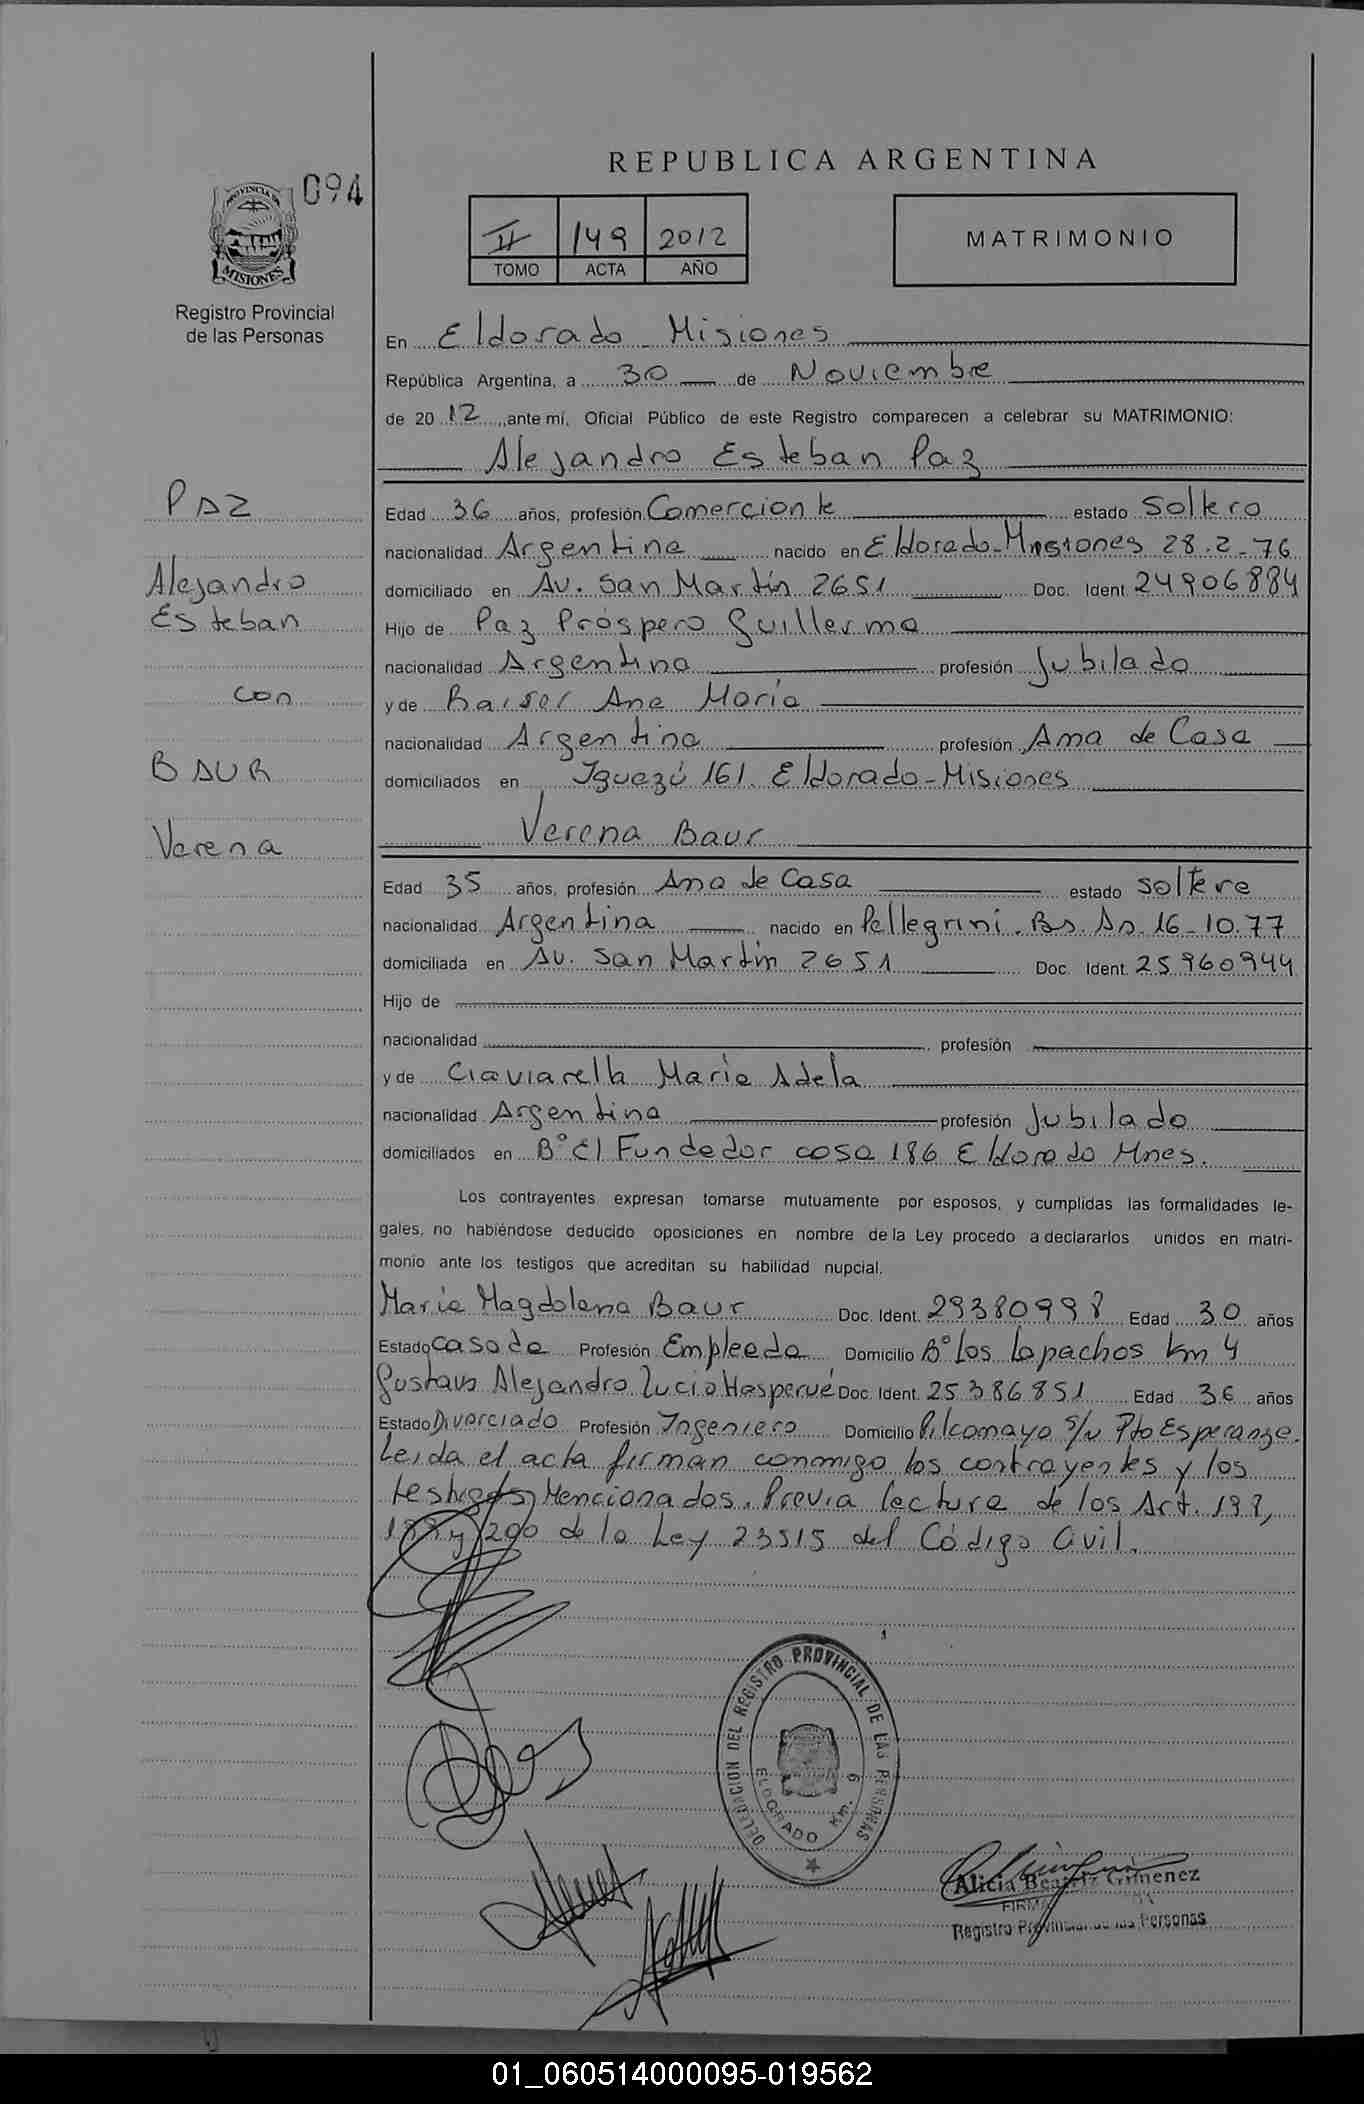 REPUBLICA ARGENTINA
094
PROVINCIA DE
MISIONES
Registro Provincial
de las Personas
II 149 2012
TOMO ACTA AÑO
MATRIMONIO
En Eldorado Misiones
República Argentina, a 30 de Noviembre
de 2012, ante mí, Oficial Público de este Registro comparecen a celebrar su MATRIMONIO:
Alejandro Esteban Paz
PAZ
Alejandro
Esteban
con
BAUR
Verena
Edad 36 años, profesión Comerciante estado Soltero
nacionalidad Argentina nacido en Eldorado-Misiones 28-2-76
domiciliado en Av. San Martín 2651 Doc. Ident. 24906884
Hijo de Paz Próspero Guillermo
nacionalidad Argentina profesión Jubilado
y de Ana María
nacionalidad Argentina profesión Ama de Casa
domiciliados en Iguazú 161. Eldorado-Misiones
Verena Baur
Edad 35 años, profesión Ama de Casa estado soltera
nacionalidad Argentina nacido en Pellegrini. Bs. As. 16-10-77
domiciliada en Av. San Martín 2651 Doc. Ident. 25960944
Hijo de
nacionalidad profesión
y de Ciaviarella María Adela
nacionalidad Argentina profesión Jubilado
domiciliados en B° El Fundador casa 186 Eldorado Mnes.
Los contrayentes expresan tomarse mutuamente por esposos, y cumplidas las formalidades le-
gales, no habiéndose deducido oposiciones en nombre de la Ley procedo a declararlos unidos en matri-
monio ante los testigos que acreditan su habilidad nupcial.
María Magdalena Baur Doc. Ident. 29380998 Edad 30 años
Estado casada Profesión Empleada Domicilio B° Los lapachos km 4
Gustavo Alejandro Lucio Hasperué Doc. Ident. 25386851 Edad 36 años
Estado Divorciado Profesión Ingeniero Domicilio Pilcomayo s/n Pto Esperanza.
Leída el acta firman conmigo los contrayentes y los
testigos Mencionados. Previa lectura de los Art. 198,
199 y 200 de la Ley 23515 del Código Civil.
DELEGACION DEL REGISTRO PROVINCIAL DE LAS PERSONAS
ELDORADO KM. 9
Alicia Beatriz Gimenez
Registro Provincial de las Personas
01_060514000095-019562